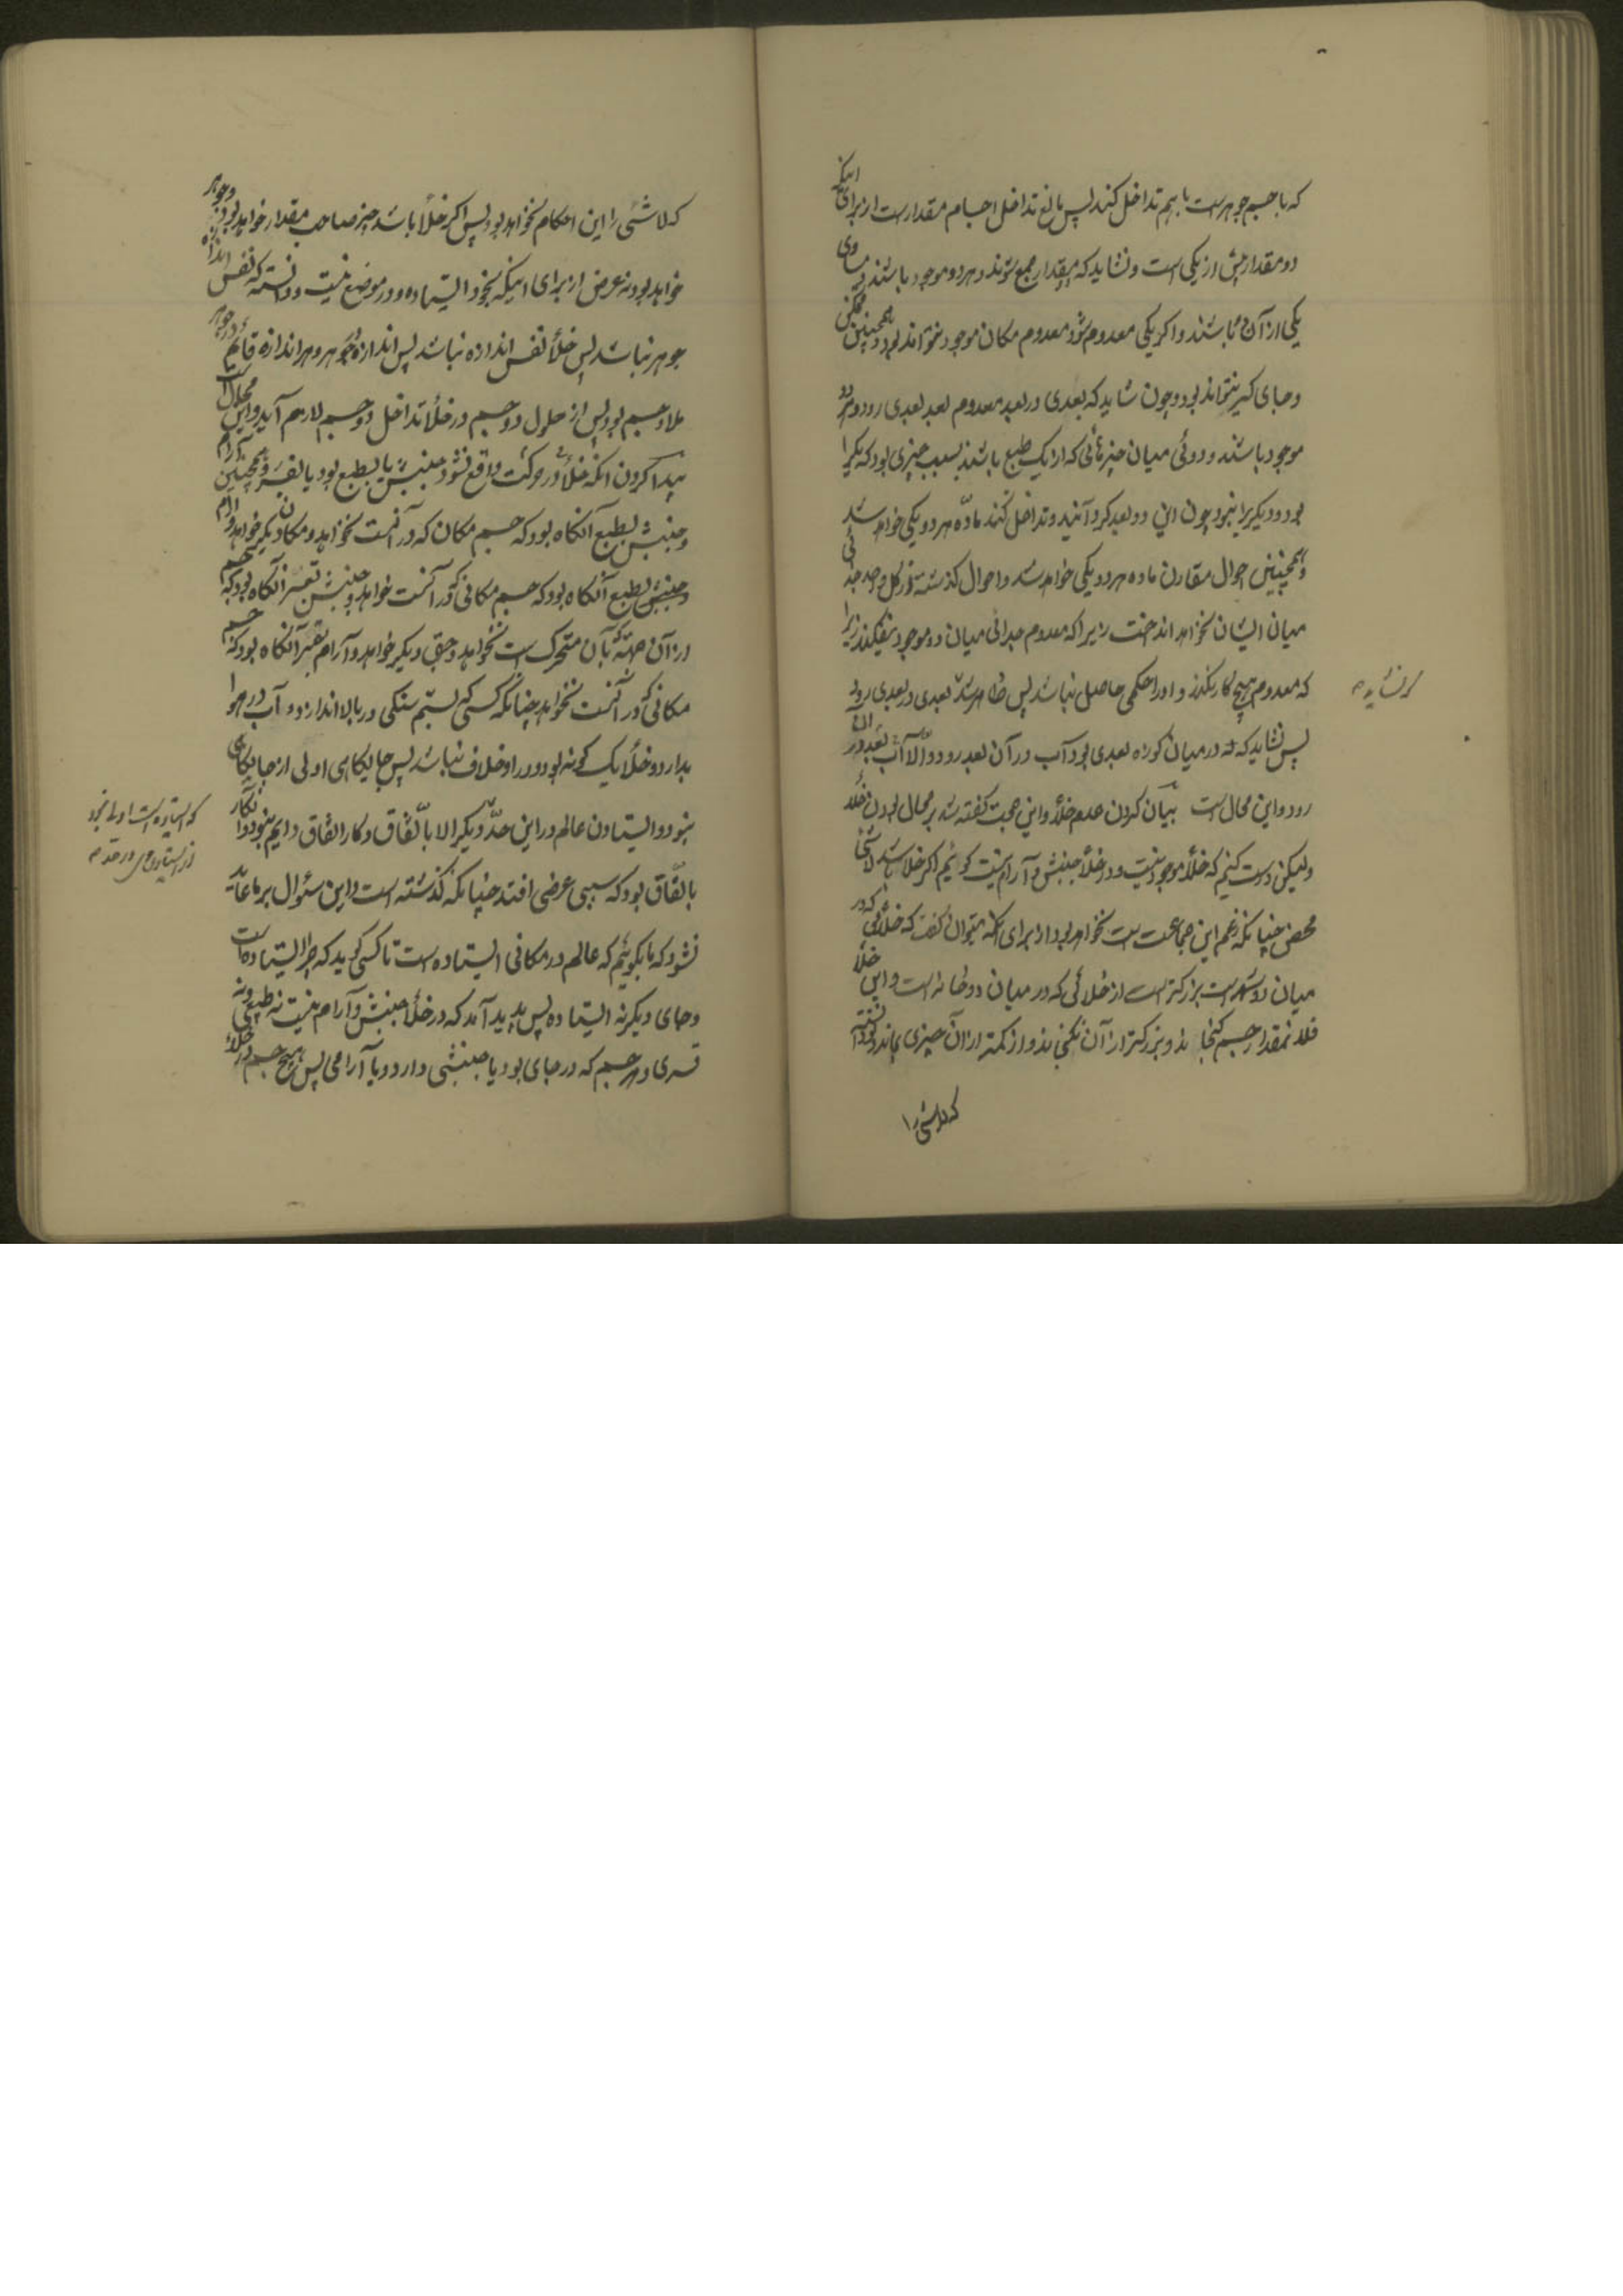 که با جسم جوهرست باهم تداخل کنند پس مانع تداخل اجسام مقدارست از برای اینکه
دو مقدار بیش از یکی است و نشاید که بمقدار جمع شوند و هر دو موجود باشند و مساوی
یکی از آن باشند و اگر یکی معدوم شود معدوم مکان موجود نتواند بود و همچنین ممکن
و جای گیر نتواند بود و چون شاید که بعدی در بعد معدوم بعد بعدی رود و هر دو
موجود باشند و دوئی میان چیزهائی که از یک طبع باشند بسبب چیزی بود که یکی را
بود و دیگریرا نبود چون این دو بعد گرد آیند و تداخل کنند ماده هر دو یکی خواهد شد
و همچنین احوال مقارن ماده هر دو یکی خواهد شد و احوال گذشته نیز کل واحد جدائی
میان ایشان نخواهد انداخت زیرا که معدوم جدائی میان دو موجود نیفکند زیرا
که معدوم هیچ کار نکند و او را حکمی حاصل نباشد پس ظاهر شد بعدی در بعدی رود
که نشاید
پس نشاید که در میان کوزه بعدی بود آب در آن بعد رود و الا آب بعد در
رود و این محال است بیان کردن عدم خلأ و این حجت گفته شد بر محال بودن خلأ
ولیکن درست کنیم که خلأ موجود نیست و در خلأ جنبش و آرام نیست گوئیم اگر خلا باشد لاشئ
محض چنانکه زعم این جماعت است نخواهد بود از برای آنکه میتوان گفت که خلائی که در
میان دو شهرست بزرگتر است از خلائی که در میان دو خانه است و این خلأ
فلان مقدار جسم گنجاند و بزرگتر از آن نگنجاند و از کمتر از آن چیزی بماند و دانسته
که لاشئ را
که لاشئ را این احکام نخواهد بود پس اگر خلأ باشد چیز صاحب مقدار خواهد بود و جوهر
خواهد بود نه عرض از برای اینکه بخود ایستاده و در موضع نیست و دانسته که نفس اندازه
جوهر نباشد پس خلأ نفس اندازه نباشد پس اندازه در جوهر و هر اندازه قائم در جوهر
ملا و جسم بود پس از حلول دو جسم در خلأ تداخل دو جسم لازم آید و این محال است
پیدا کردن آنکه خلأ در حرکت واقع نشود جنبش یا بطبع بود یا بقسر و همچنین آرام
و جنبش بطبع آنگاه بود که جسم مکان که در آنست نخواهد و مکان دیگر خواهد و آرام
و جنبش بطبع آنگاه بود که جسم مکانی که در آنست خواهد و جنبش بقسر آنگاه بود که جسم
از آن جهت که بآن متحرک است نخواهد و جهتی دیگر خواهد و آرام بقسر آنگاه بود که جسم
مکانی که در آنست نخواهد چنانکه کسی بستم سنگی در بالا اندازد و آب در هوا
بدارد و خلأ یک گونه بود و در او خلاف نباشد پس جایگاهی اولی از جایگاهی
نبود و ایستادن عالم در این حد و دیگر الا باتفاق و کار اتفاق دایم نبود و آنکار
باتفاق بود که سببی عرضی افتد چنانکه گذشته است و این سئوال بر ما عاید
نشود که ما بگوئیم که عالم در مکانی ایستاده است تا کسی گوید که چرا ایستاده است
و جای دیگر نه ایستاده پس پدید آمد که در خلأ جنبش و آرام نیست نه طبیعی و نه
قسری و هر جسم که در جای بود یا جنبشی دارد و یا آرامی پس هیچ جسم در خلأ
که ایستاده است اولی نبود
از ایستادن در حد